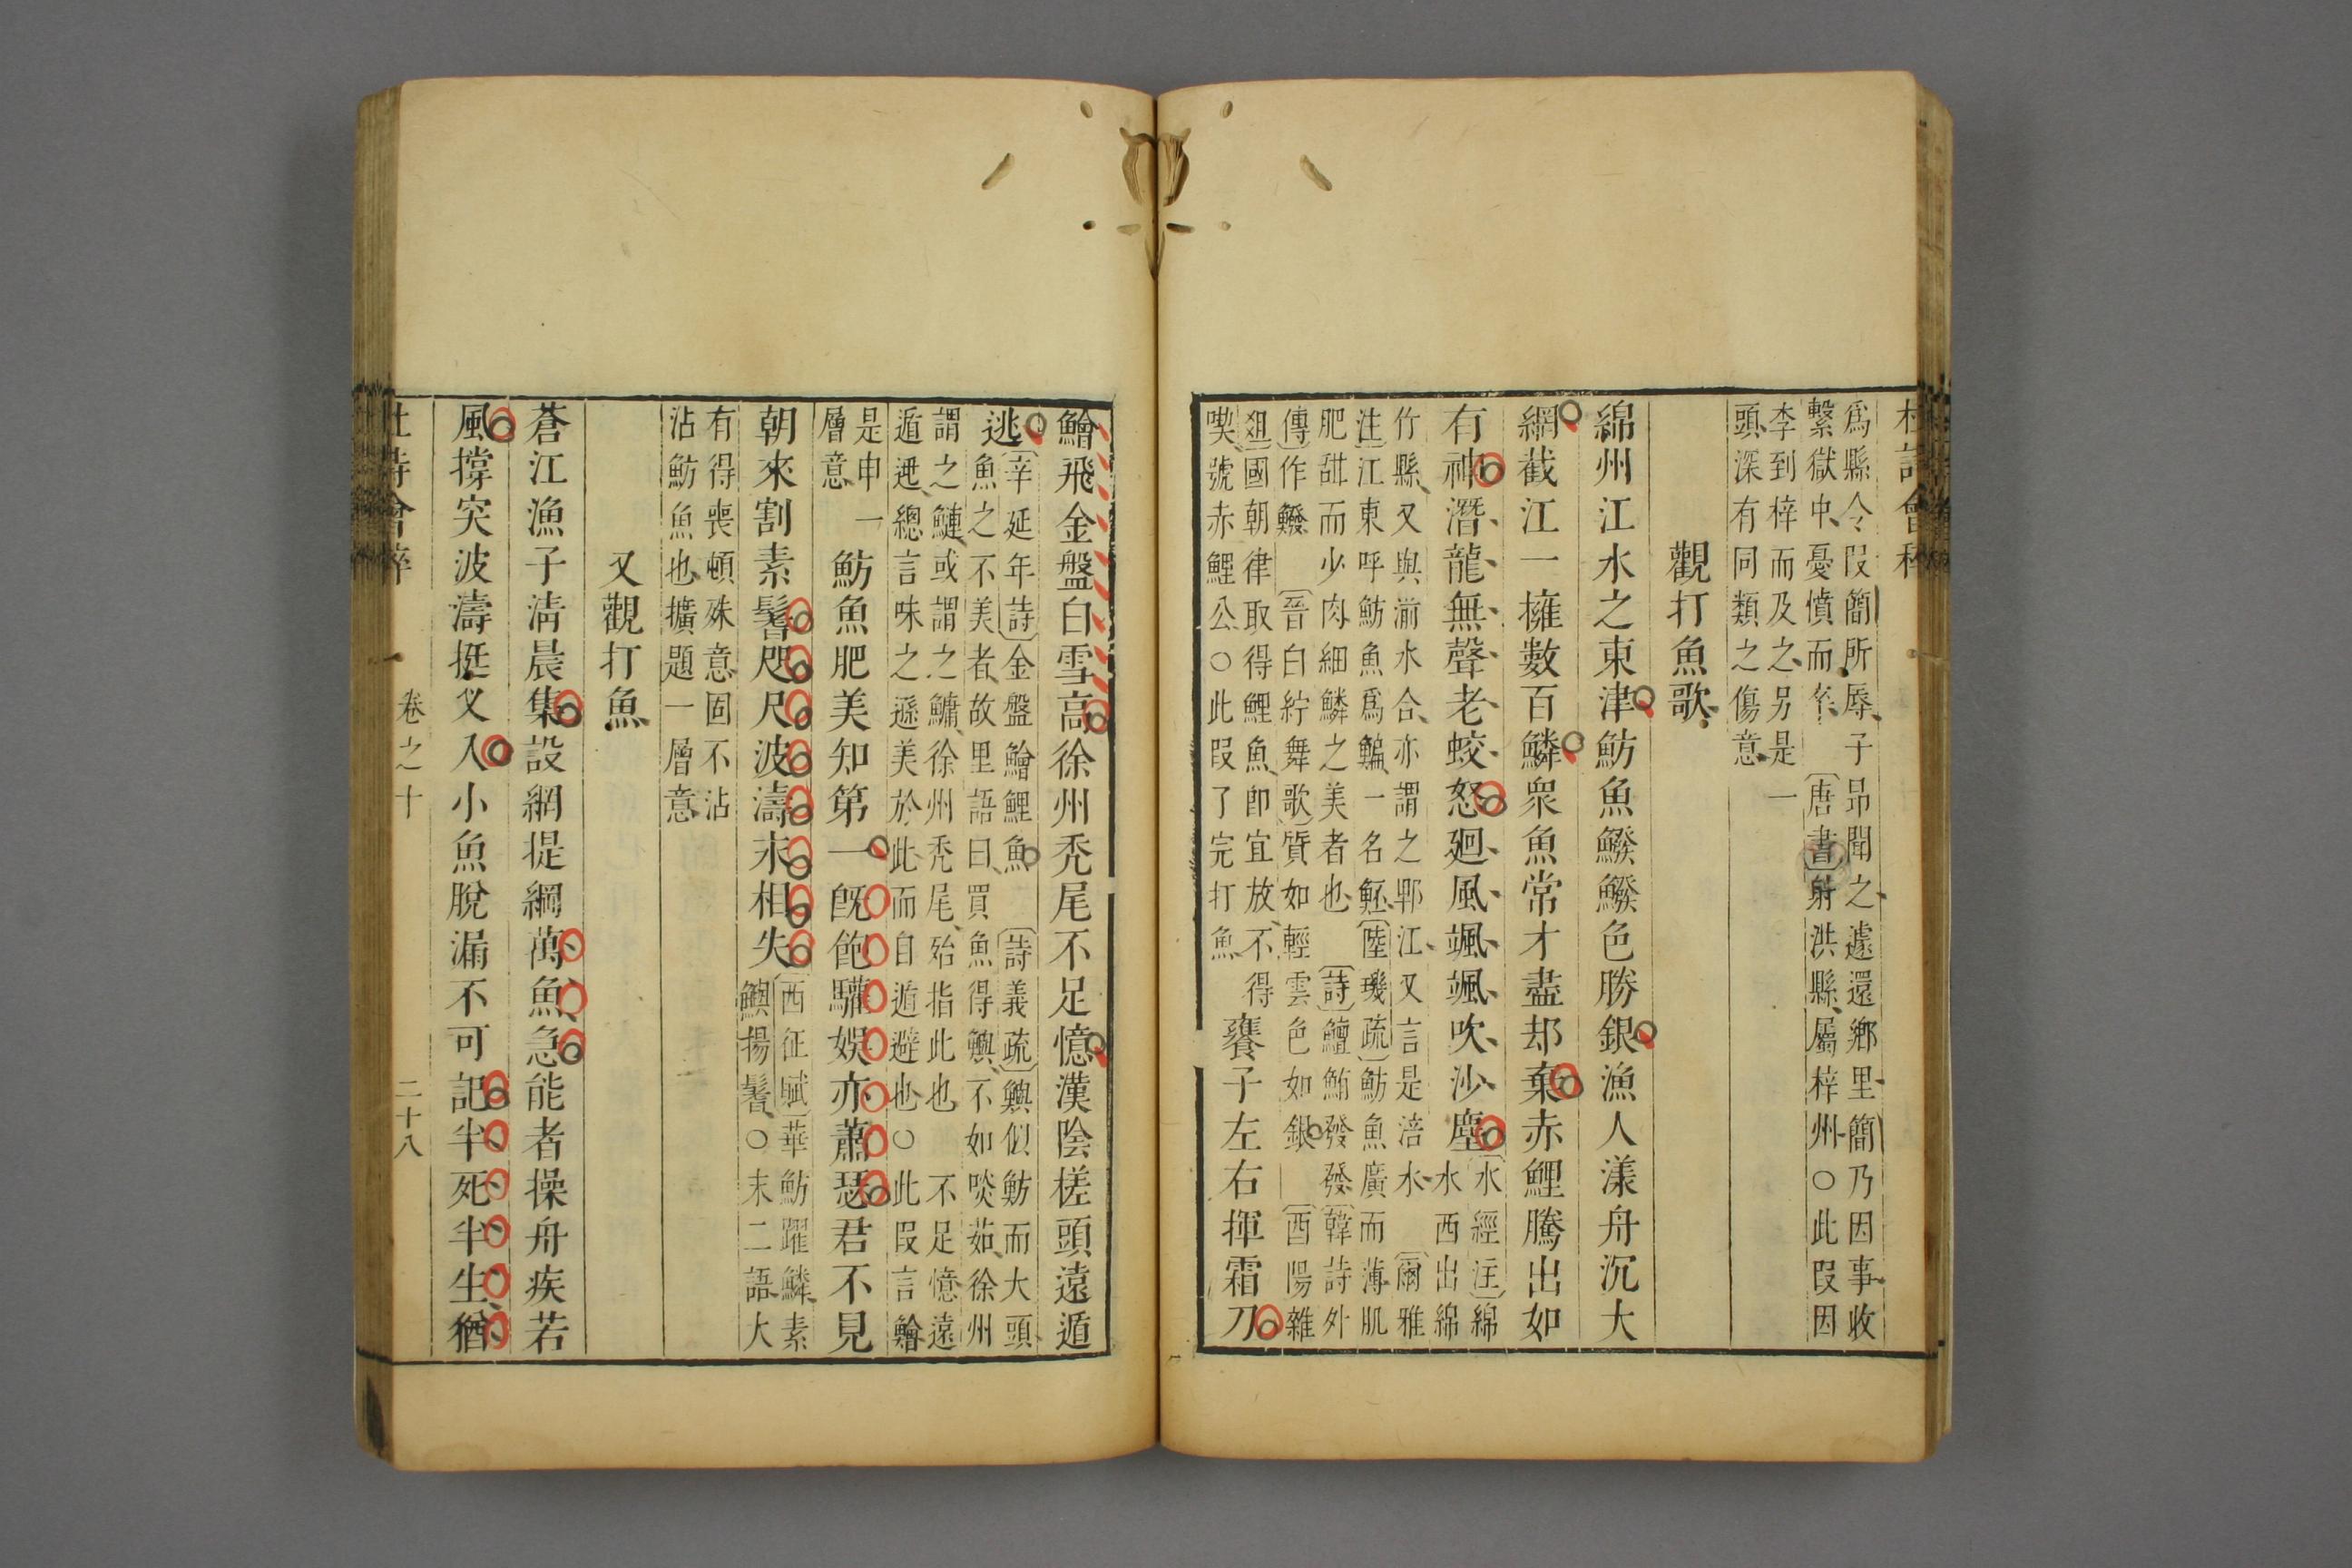 杜詩會稡
爲縣令叚簡所辱子昂聞之遽還鄉里簡乃因事收
繫獄中憂憤而卒〔唐書〕射洪縣屬梓州○此叚因
李到梓而及之另是一
頭深有同類之傷意
觀打魚歌
綿州江水之東津魴魚鱍鱍色勝銀漁人漾舟沉大
網截江一擁數百鱗衆魚常才盡却棄赤鯉騰出如
有神潛龍無聲老蛟怒廻風颯颯吹沙塵
〔水經注〕綿
水西出綿
竹縣又與湔水合亦謂之郫江又言是涪水〔爾雅
注〕江東呼魴魚爲鯿一名魾〔陸璣疏〕魴魚廣而薄肌
肥甜而少肉細鱗之美者也〔詩〕鱣鮪發發〔韓詩外
傳〕作鱍〔晉白紵舞歌〕質如輕雲色如銀〔酉陽雜
俎〕國朝律取得鯉魚即宜放不得
喫號赤鯉公○此叚了完打魚
饔子左右揮霜刀
鱠飛金盤白雪高徐州禿尾不足憶漢陰槎頭遠遁
逃
〔辛延年詩〕金盤鱠鯉魚〔詩義疏〕鱮似魴而大頭
魚之不美者故里語曰買魚得鱮不如啖茹徐州
謂之鰱或謂之鱅徐州禿尾殆指此也不足憶遠
遁逃總言味之遜美於此而自遁避也○此叚言鱠
是申一
層意
魴魚肥美知第一旣飽驩娛亦蕭瑟君不見
朝來割素鬐咫尺波濤永相失
〔西征賦〕華魴躍鱗素
鱮揚鬐○末二語大
有得喪頓殊意固不沾
沾魴魚也擴題一層意
又觀打魚
蒼江漁子淸晨集設網提綱萬魚急能者操舟疾若
風撐突波濤挺叉入小魚脫漏不可記半死半生猶
杜詩會稡
卷之十
二十八